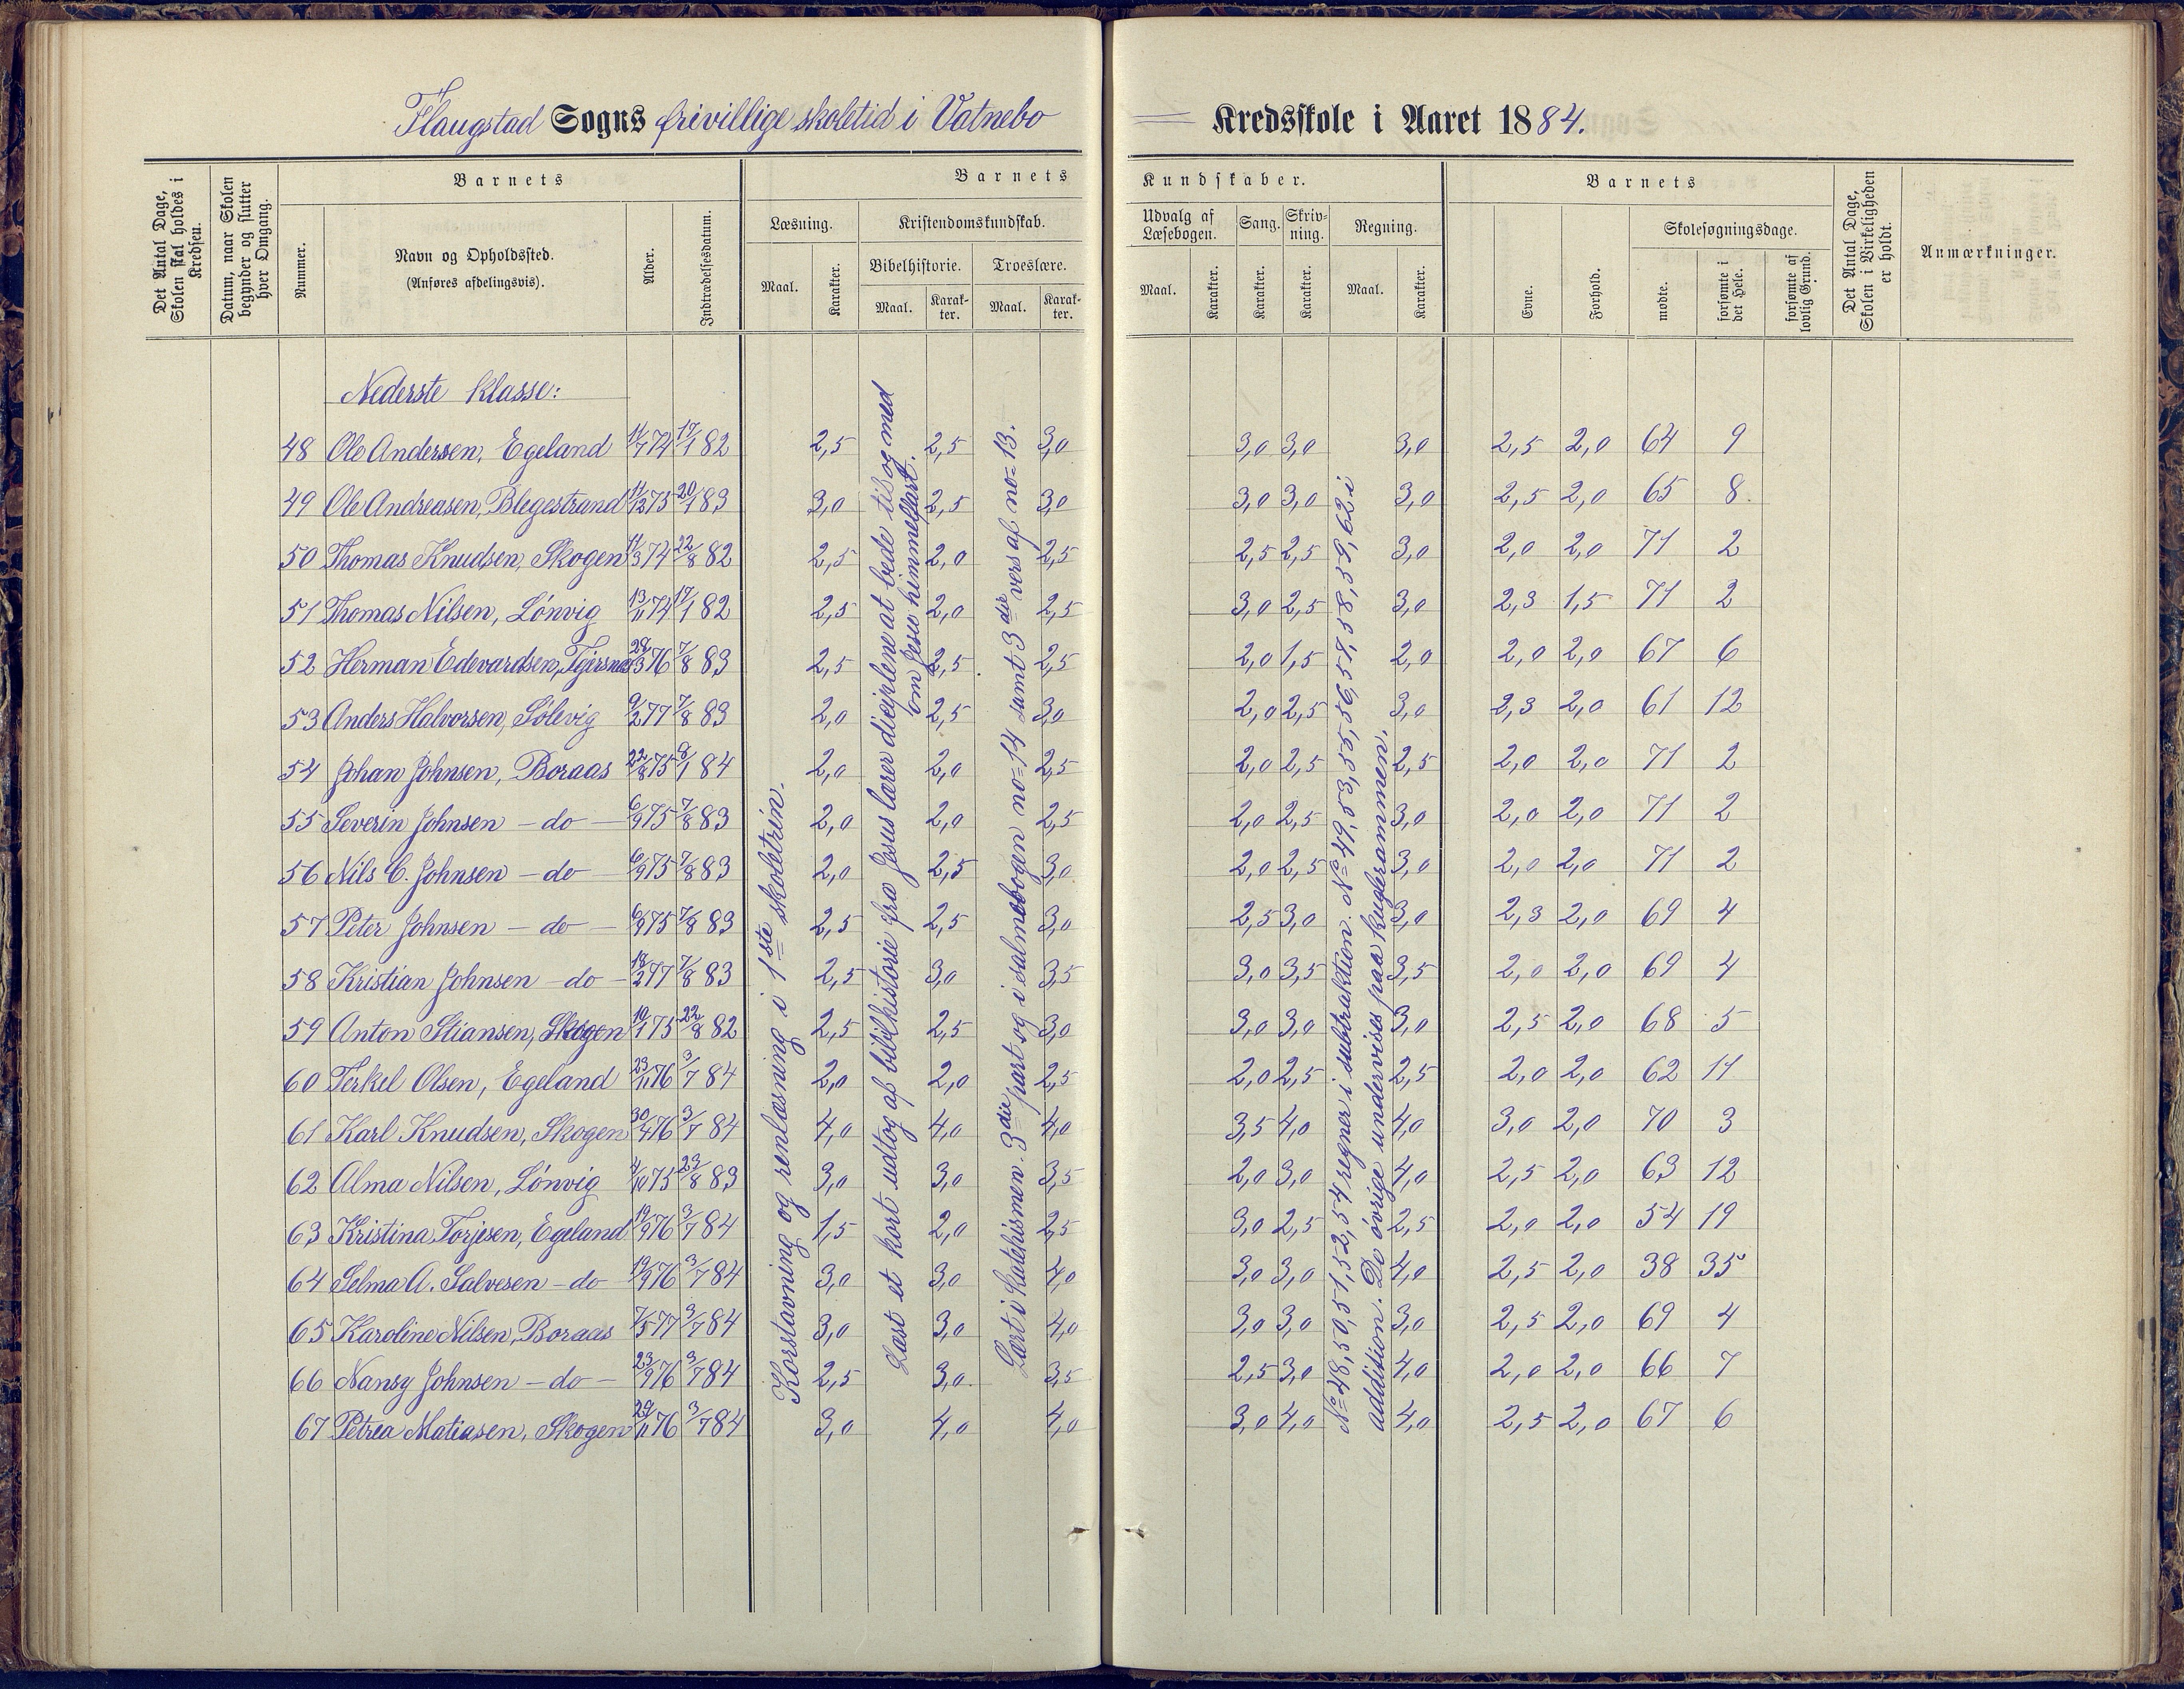 Flaugstad Sogns frivillige skoletid i Vatnebo Kredsskole i Aaret 1884.
Det Antal Dage, Skolen skal holdes i Kredsen.
Datum, naar Skolen begynder og slutter hver Omgang.
Barnets
Nummer.
Navn og Opholdssted.
(Anføres afdelingsvis).
Alder.
Indtrædelsesdatum.
Barnets Kundskaber.
Læsning.
Maal. Karakter.
Kristendomskundskab.
Bibelhistorie. Troeslære.
Maal. Karakter. Maal. Karakter.
Udvalg af Læsebogen. Sang. Skrivning. Regning.
Maal. Karakter. Karakter. Karakter. Maal. Karakter.
Barnets
Evne. Forhold.
Skolesøgningsdage.
mødte. forsømte i det Hele. forsømte af lovlig Grund.
Det Antal Dage, Skolen i Virkeligheden er holdt.
Anmærkninger.
Nederste klasse:
48 Ole Andersen, Egeland 11/7 74 17/1 82 2,5 2,5 3,0 3,0 3,0 3,0 2,5 2,0 64 9
49 Ole Andreasen, Blegestrand 11/12 75 20/1 83 3,0 2,5 3,0 3,0 3,0 3,0 2,5 2,0 65 8
50 Thomas Knudsen, Skogen 11/3 74 22/8 82 2,5 2,0 2,5 2,5 2,5 3,0 2,0 2,0 71 2
51 Thomas Nilsen, Lónvig 13/11 74 17/1 82 2,5 2,0 2,5 3,0 2,5 3,0 2,3 1,5 71 2
52 Herman Edevardsen, 29/3 76 7/8 83 2,5 2,5 2,5 2,0 1,5 2,0 2,0 2,0 67 6
53 Anders Halvorsen, Sólevig 9/2 77 7/8 83 2,0 2,5 3,0 2,0 2,5 3,0 2,3 2,0 61 12
54 Johan Johnsen, Boraas 22/8 75 8/1 84 2,0 2,0 2,5 2,0 2,5 2,5 2,0 2,0 71 2
55 Severin Johnsen – do – 6/9 75 7/8 83 2,0 2,0 2,5 2,0 2,5 3,0 2,0 2,0 71 2
56 Nils C. Johnsen – do – 6/9 75 7/8 83 2,0 2,5 3,0 2,0 2,5 3,0 2,0 2,0 71 2
57 Peter Johnsen – do – 6/9 75 7/8 83 2,5 2,5 3,0 2,5 3,0 3,0 2,3 2,0 69 4
58 Kristian Johnsen – do – 18/2 77 7/8 83 2,5 3,0 3,5 3,0 3,5 3,5 2,0 2,0 69 4
59 Anton Stiansen, Skogen 10/1 75 22/8 82 2,5 2,5 3,0 3,0 3,0 3,0 2,5 2,0 68 5
60 Terkel Olsen, Egeland 23/11 76 3/7 84 2,0 2,0 2,5 2,0 2,5 2,5 2,0 2,0 62 11
61 Karl Knudsen, Skogen 30/4 76 3/7 84 4,0 4,0 4,0 3,5 4,0 4,0 3,0 2,0 70 3
62 Alma Nilsen, Lónvig 4/10 75 23/8 83 3,0 3,0 3,5 2,0 3,0 4,0 2,5 2,0 63 12
63 Kristina Torjesen, Egeland 19/9 76 3/7 84 1,5 2,0 2,5 3,0 2,5 2,5 2,0 2,0 54 19
64 Selma A. Salvesen – do – 19/9 76 3/7 84 3,0 3,0 4,0 3,0 3,0 4,0 2,5 2,0 38 35
65 Karoline Nilsen, Boraas 7/5 77 3/7 84 3,0 3,0 4,0 3,0 3,0 3,0 2,5 2,0 69 4
66 Nansy Johnsen – do – 23/9 76 3/7 84 2,5 3,0 3,5 2,5 3,0 4,0 2,0 2,0 66 7
67 Petrea Matiasen, Skogen 29/11 76 3/7 84 3,0 4,0 4,0 3,0 4,0 4,0 2,5 2,0 67 6
Korstavning og renlæsning i 1ste skoletrin.
Læst et kort udtog af bibelhistorie fra Jesus lærer disciplene at bede til og med
om Jesu himmelfart.
Lært i Katekismen. 3die part og i salmebogen no 14 samt 3die vers af no 13.
No 48, 50, 51, 52, 54 regner i subtraktion. No 49, 53, 55, 56, 57, 58, 59, 62 i
addition. De óvrige undervises paa kuglerammen.